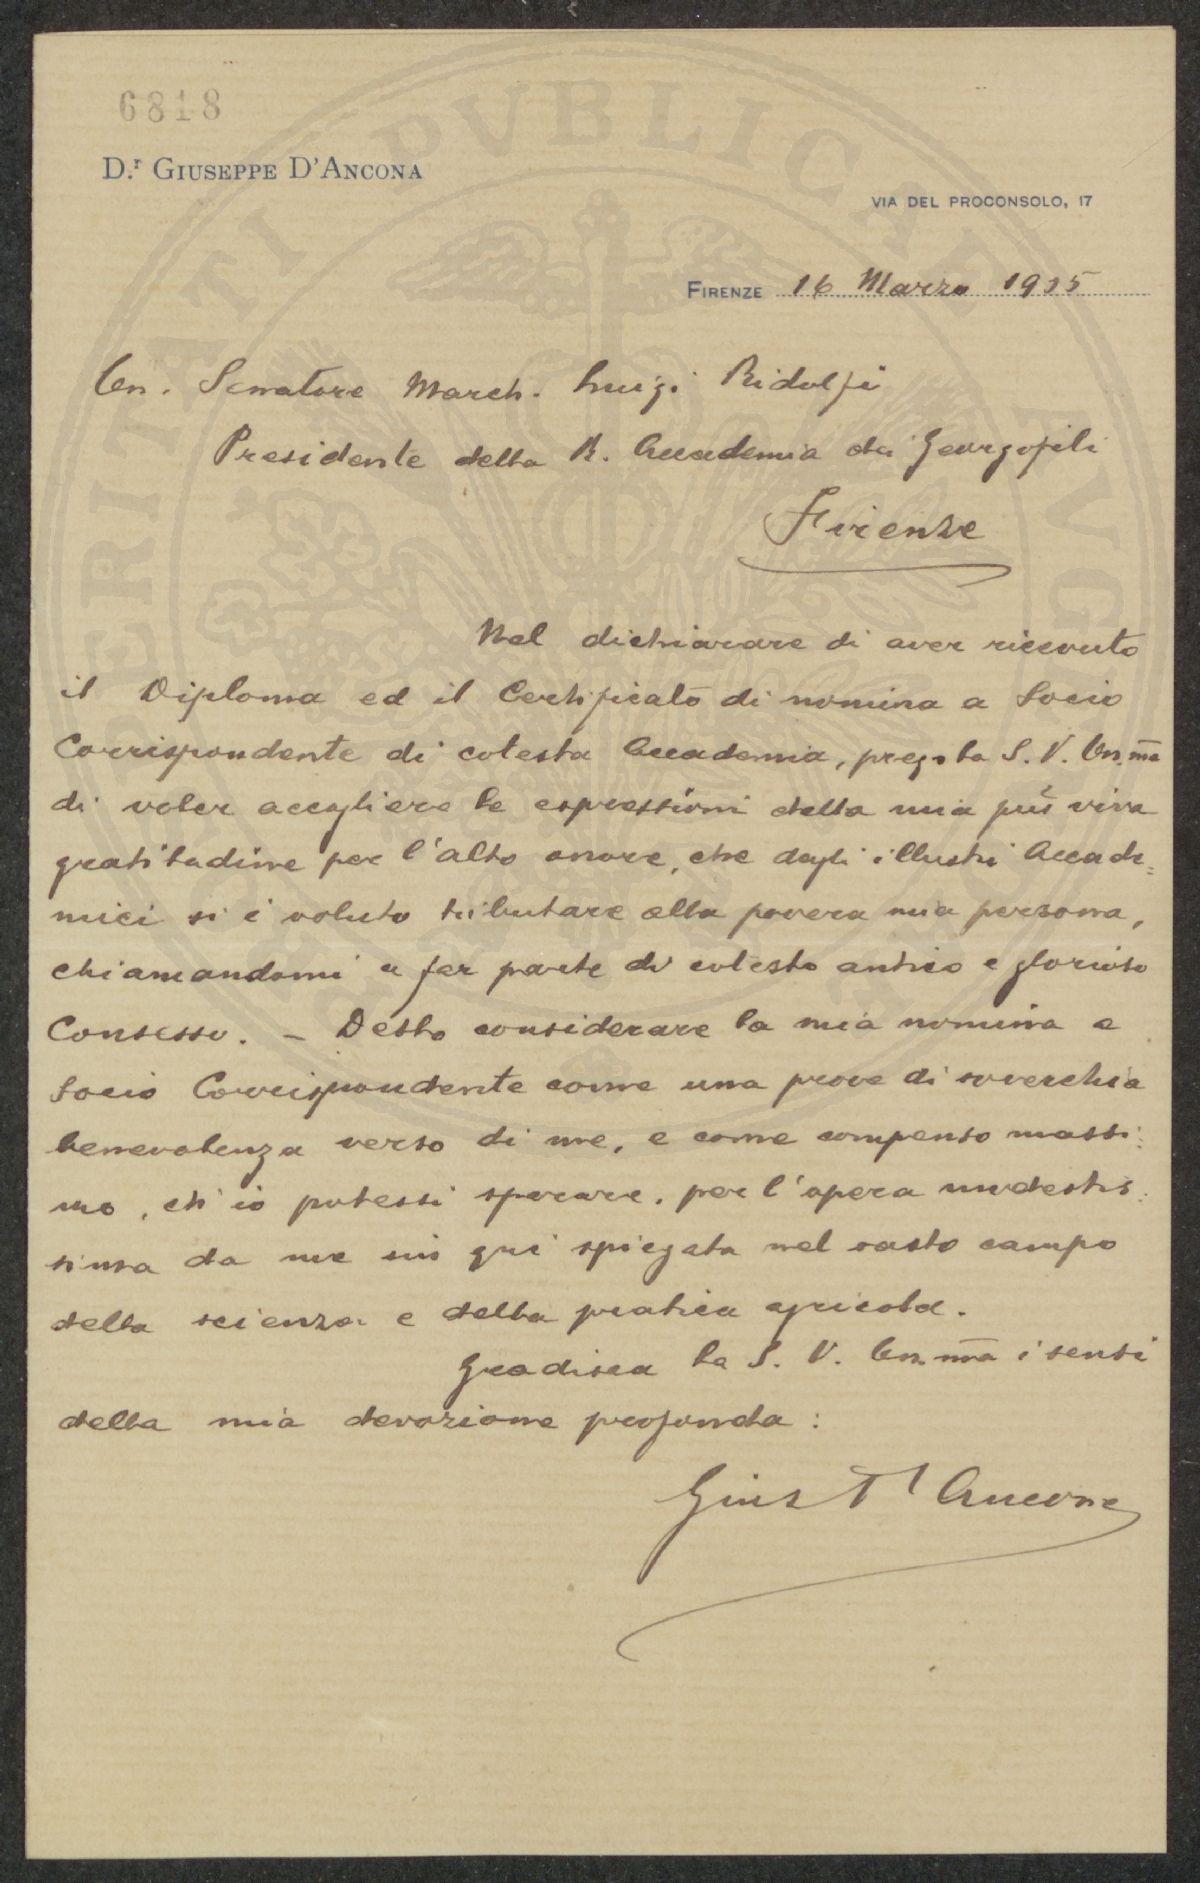 6818
D.r GIUSEPPE D'ANCONA
VIA DEL PROCONSOLO, 17
FIRENZE 16 Marzo 1905
On. Senatore March. Luigi Ridolfi
Presidente della R. Accademia dei Georgofili
Firenze
Nel dichiarare di aver ricevuto
il Diploma ed il Certificato di nomina a Socio
Corrispondente di cotesta Accademia, prego la S. V. On.ma
di voler accogliere le espressioni della mia più viva
gratitudine per l'alto onore, che dagli illustri Accade=
mici si è voluto tributare alla povera mia persona,
chiamandomi a far parte di cotesto antico e glorioso
Consesso. - Debbo considerare la mia nomina a
Socio Corrispondente come una prova di soverchia
benevolenza verso di me, e come compenso massi:
mo, ch'io potessi sperare, per l'opera modestis:
sima da me sin qui spiegata nel vasto campo
della scienza e della pratica agricola.
Gradisca la S. V. On.ma i sensi
della mia devozione profonda:
Gius D'Ancona